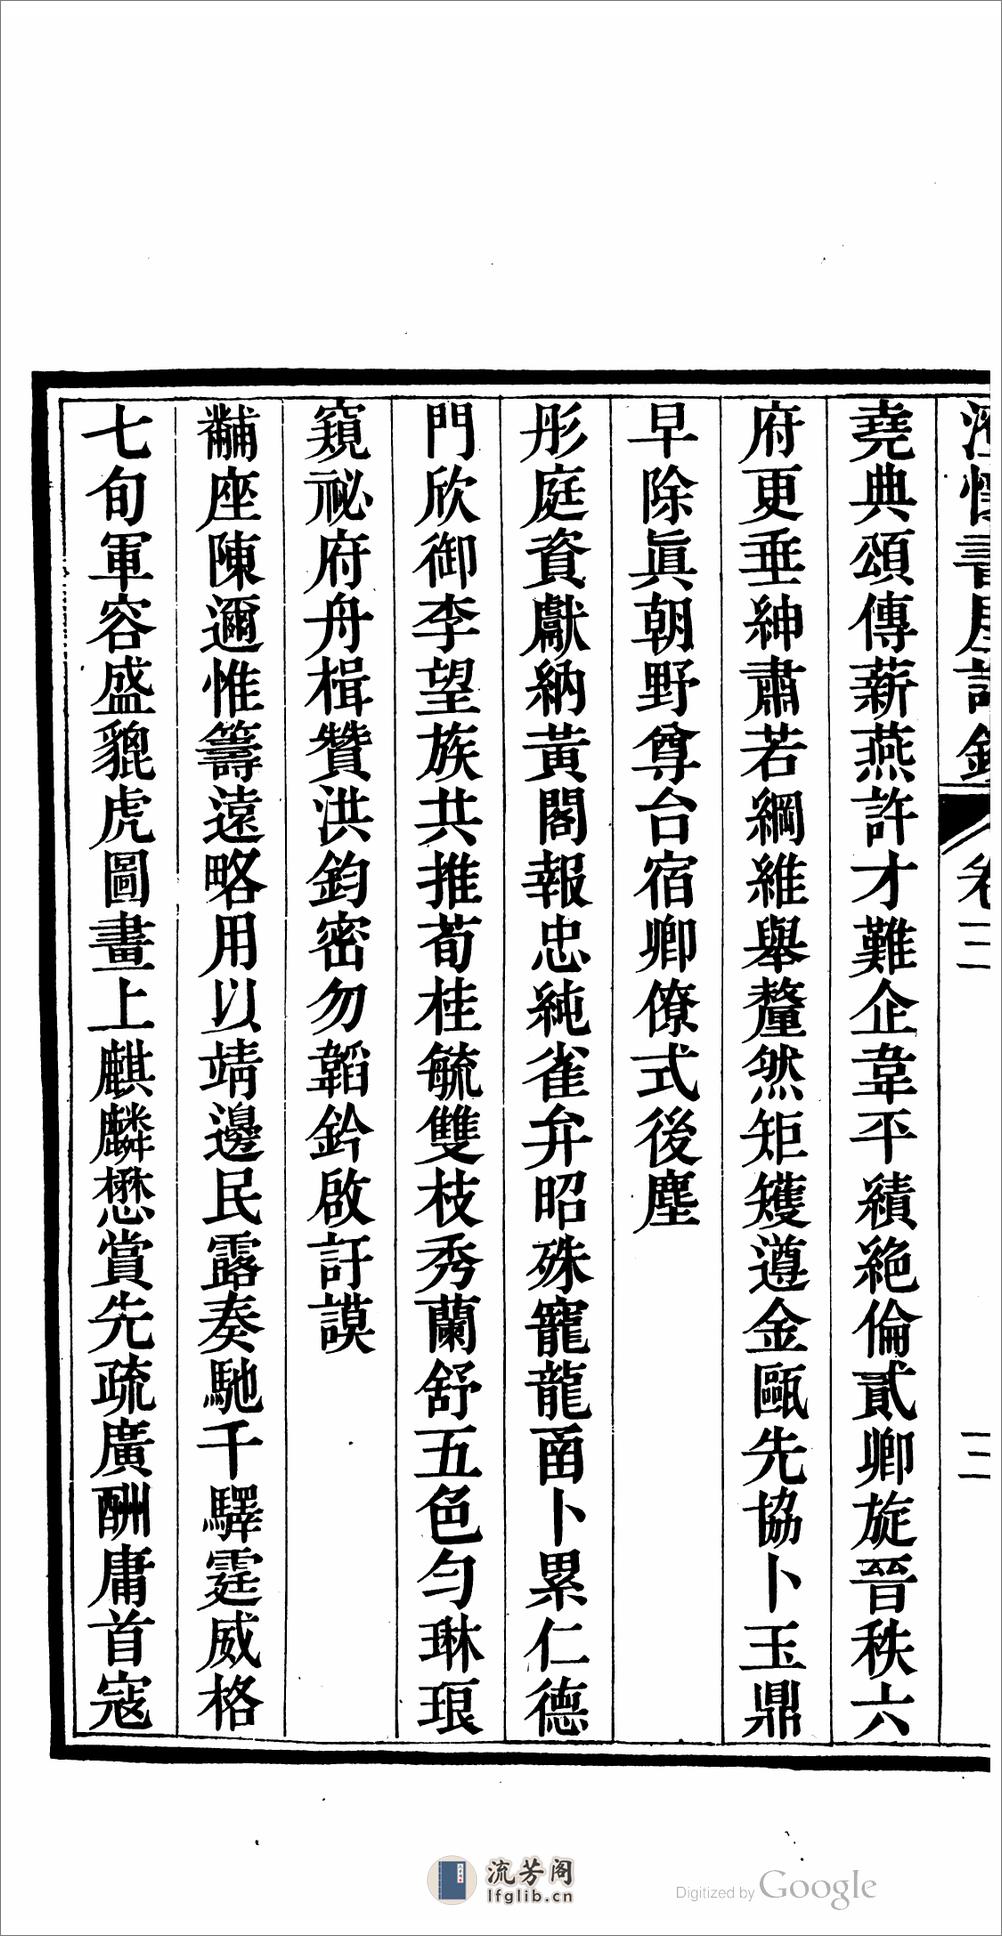 澄懷書屋詩鈔 卷三 三
堯典頌傳薪燕許才難企韋平績絕倫貳卿旋晉秩六
府更垂紳肅若綱維舉釐然矩矱遵金甌先協卜玉鼎
早除眞朝野尊台宿卿僚式後塵
彤庭資獻納黃閣報忠純雀弁昭殊寵龍卣卜累仁德
門欣御李望族共推荀桂毓雙枝秀蘭舒五色勻琳琅
窺祕府舟楫贊洪鈞密勿韜鈐啟訏謨
黼座陳邇惟籌遠略用以靖邊民露奏馳千驛霆威格
七旬軍容盛貔虎圖畫上麒麟懋賞先疏廣酬庸首寇
流芳阁
lfglib.cn
Digitized by Google